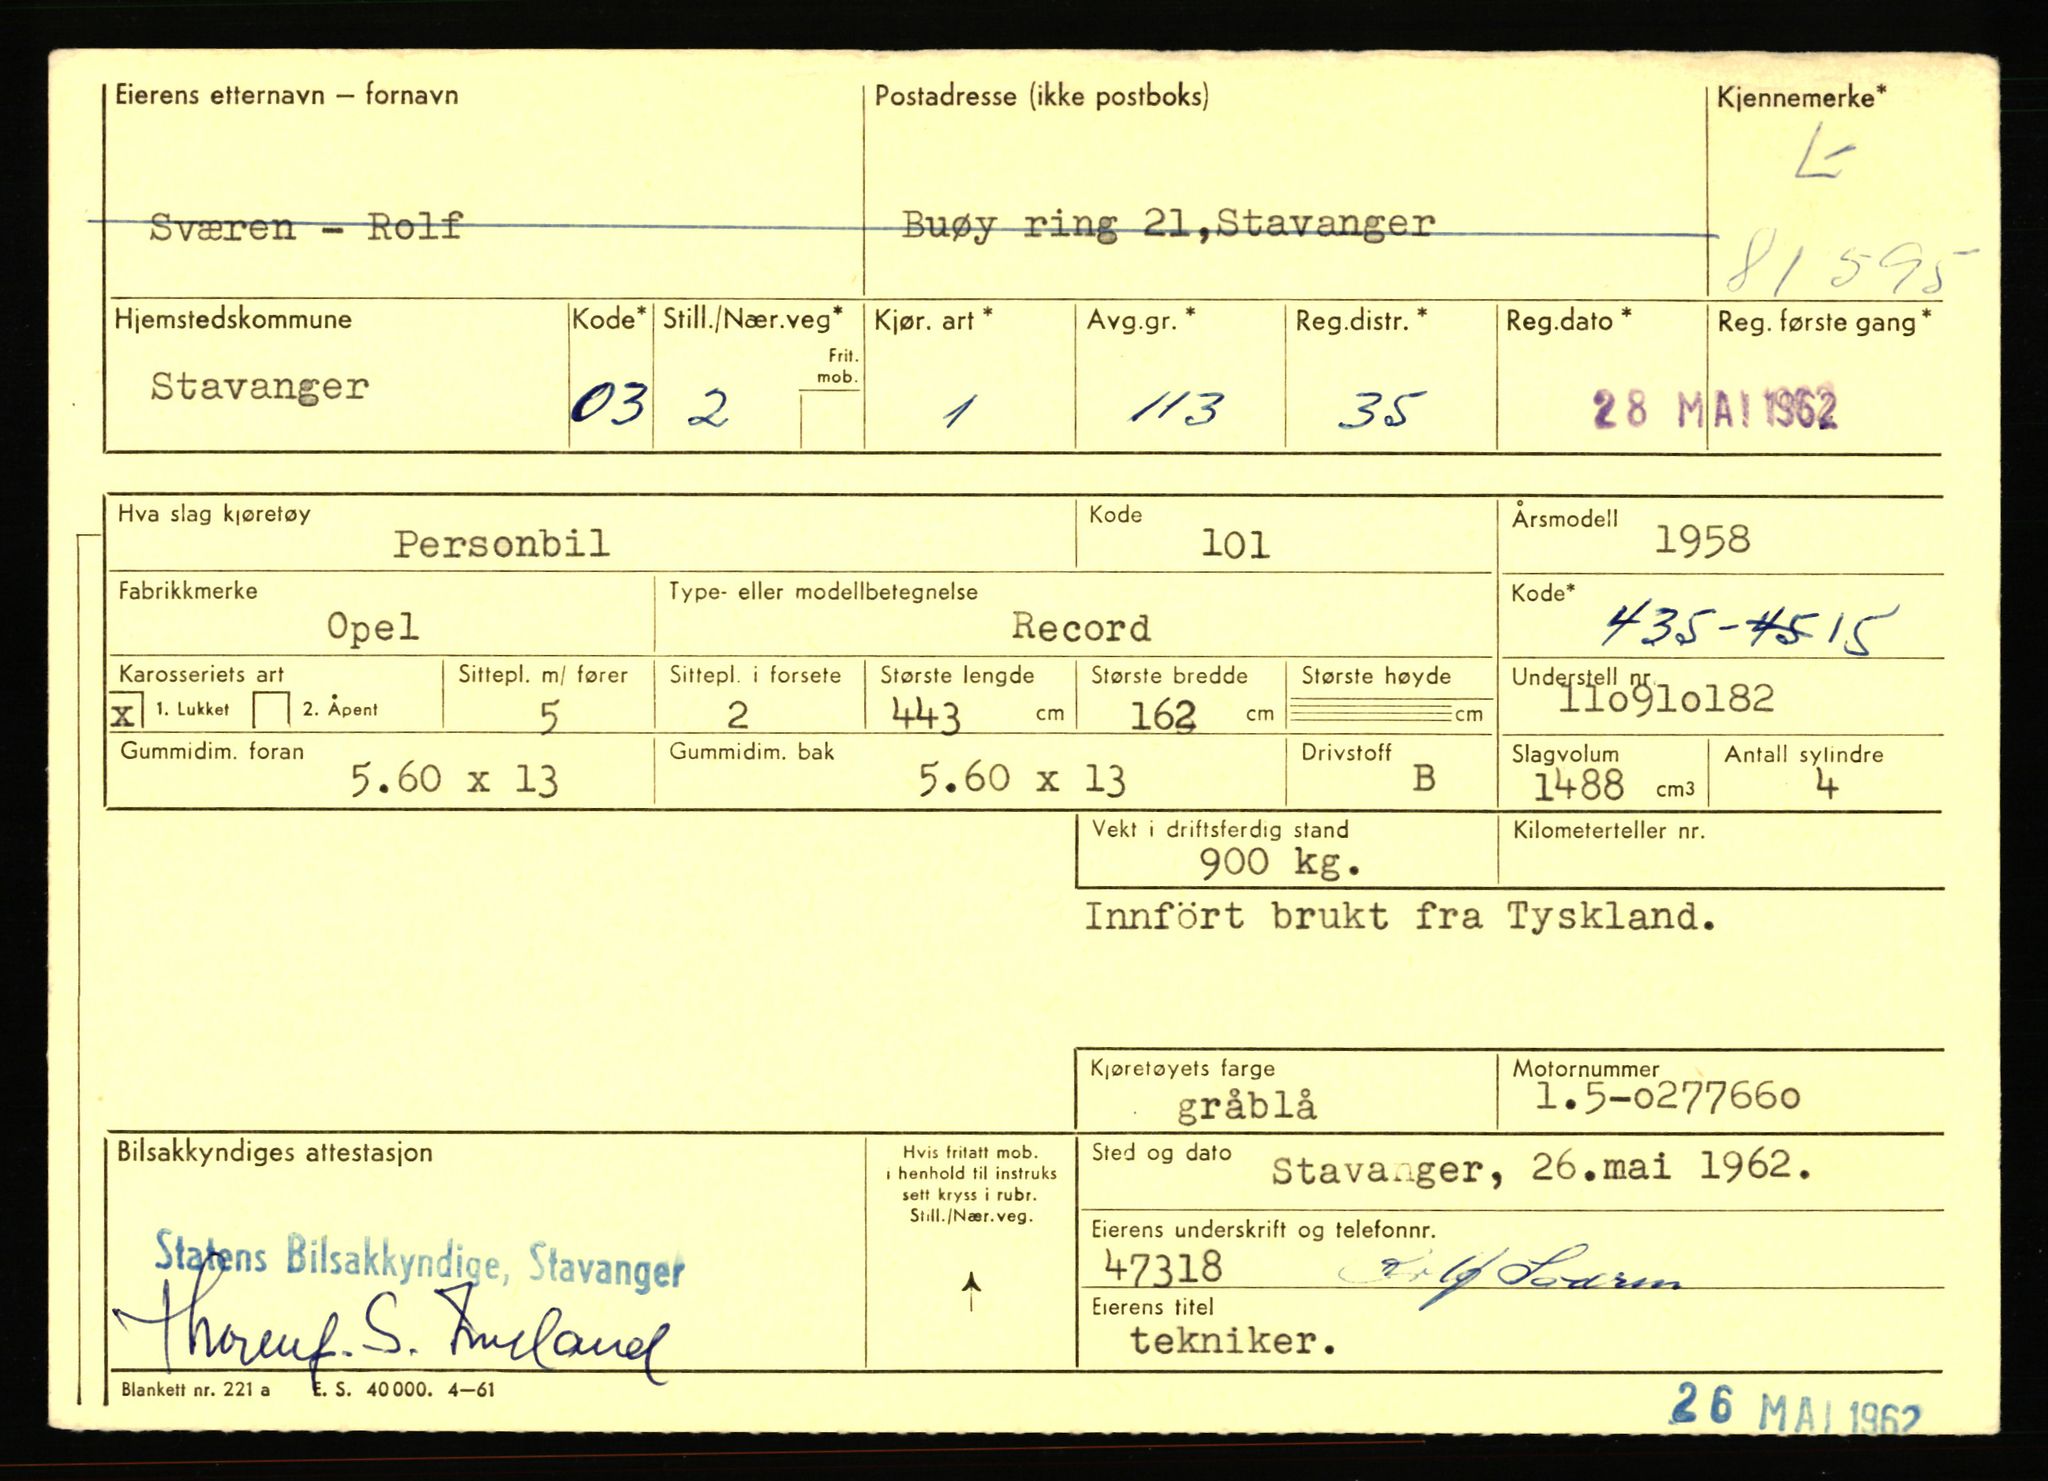 Eierens etternavn — fornavn
Postadresse (ikke postboks)
Kjennemerke*
L-
Sværen - Rolf
Buøy ring 21,Stavanger
81595
Hjemstedskommune
Kode*
Still./Nær.veg*
Frit.
mob.
Kjør. art *
Avg.gr. *
Reg.distr. *
Reg.dato *
Reg. første gang *
Stavanger
03
2
1
113
35
28 MAI 1962
Hva slag kjøretøy
Personbil
Kode
101
Årsmodell
1958
Fabrikkmerke
Opel
Type- eller modellbetegnelse
Record
Kode*
435-4515
Karosseriets art
x 1. Lukket 2. Åpent
Sittepl. m/ fører
5
Sittepl. i forsete
2
Største lengde
443 cm
Største bredde
162 cm
Største høyde
cm
Understell nr.
11o91o182
Gummidim. foran
5.60 x 13
Gummidim. bak
5.60 x 13
Drivstoff
B
Slagvolum
1488 cm3
Antall sylindre
4
Vekt i driftsferdig stand
900 kg.
Kilometerteller nr.
Innfört brukt fra Tyskland.
Kjøretøyets farge
gråblå
Motornummer
1.5-o27766o
Bilsakkyndiges attestasjon
Hvis fritatt mob.
i henhold til instruks
sett kryss i rubr.
Still./Nær.veg.
Sted og dato
Stavanger, 26.mai 1962.
Statens Bilsakkyndige, Stavanger
Eierens underskrift og telefonnr.
47318
Rolf Sværen
Eierens titel
tekniker.
Blankett nr. 221 a E. S. 40000. 4—61
26 MAI 1962